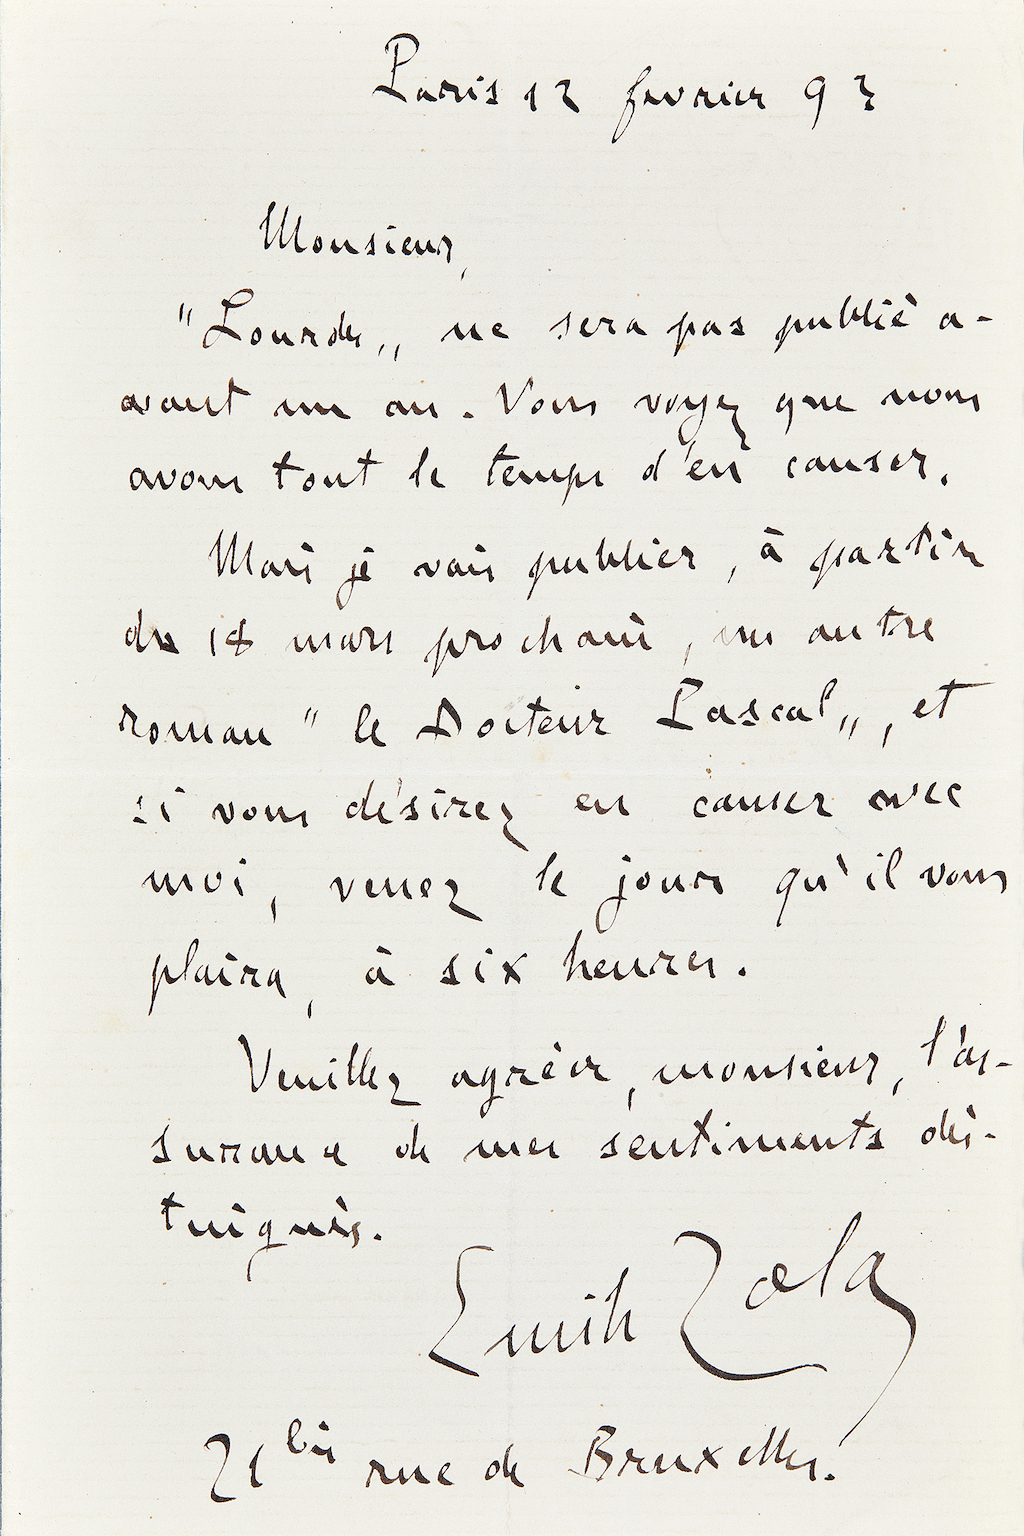 Paris 12 février 93
Monsieur,
"Lourdes„ ne sera pas publié a-
vant un an. Vous voyez que nous
avons tout le temps d'en causer.
Mais je vais publier, à partir
du 18 mars prochain, un autre
roman "le Docteur Pascal„, et
si vous désirez en causer avec
moi, venez le jour qu'il vous
plaira, à six heures.
Veuillez agréer, monsieur, l'as-
surance de mes sentiments dis-
tingués.
Emile Zola
21 bis rue de Bruxelles.